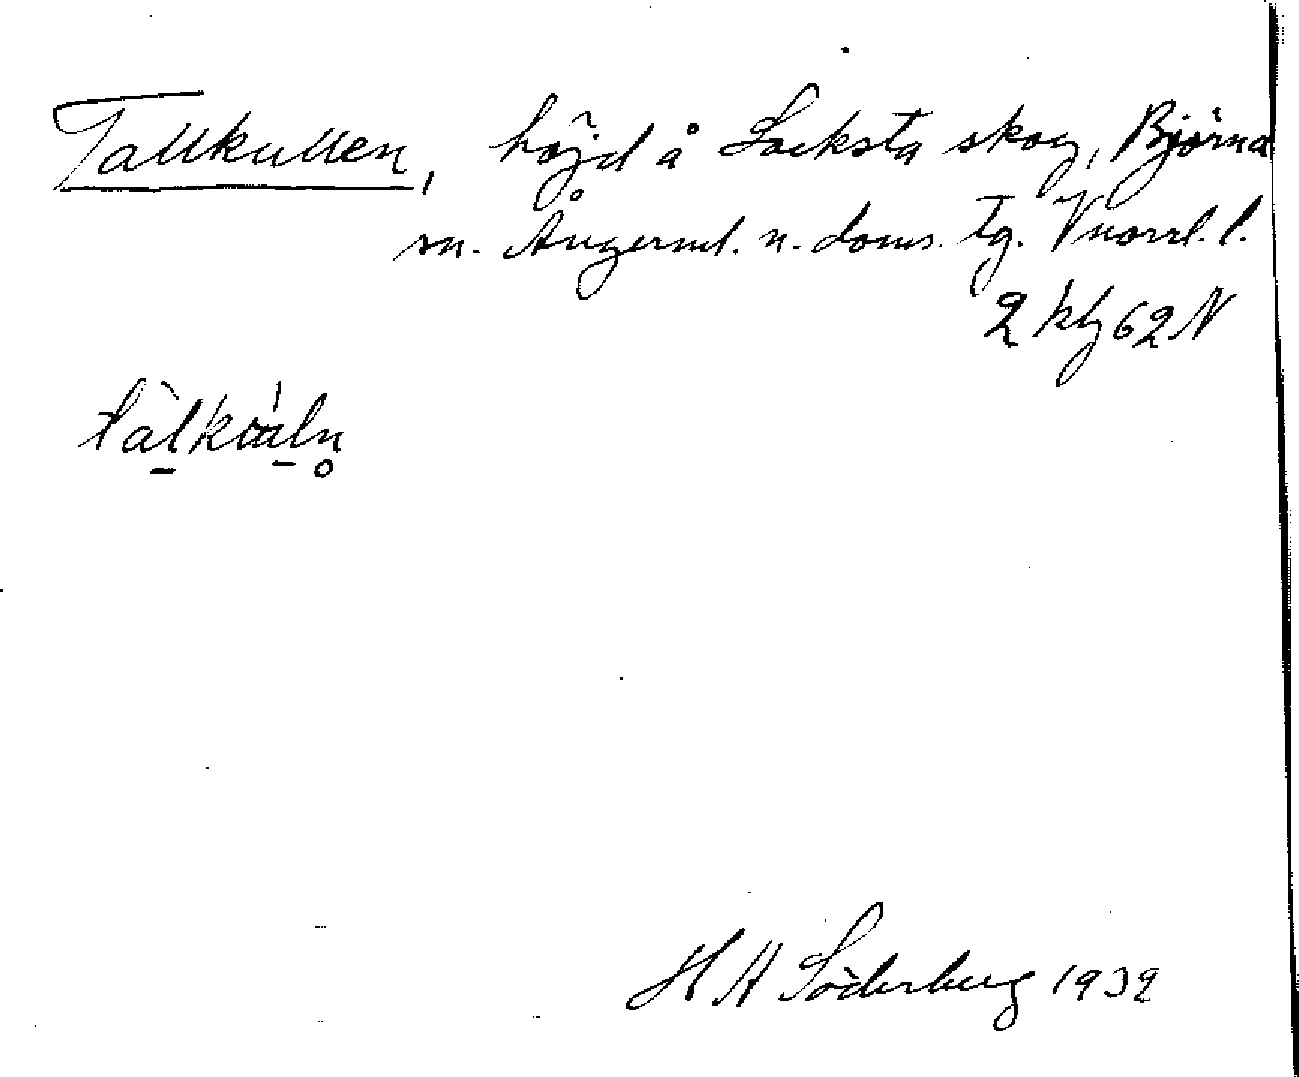 Tallkullen, höjd å Locksta skog, Björna
sn. Ångerml. n. doms. tg. V norrl. l.
2 kbg 62 N
H A Söderberg 1932